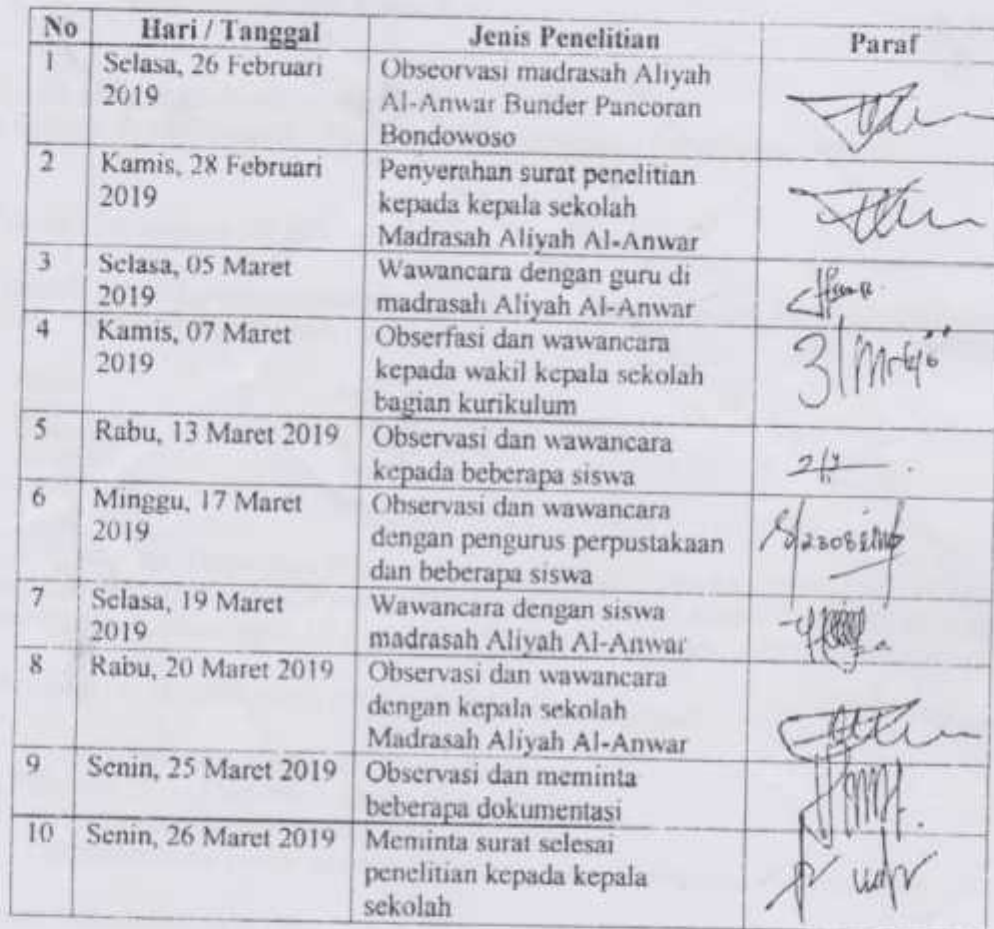 No Hari / Tanggal Jenis Penelitian Paraf
1 Selasa, 26 Februari 2019 Obseorvasi madrasah Aliyah
Al-Anwar Bunder Pancoran
Bondowoso
2 Kamis, 28 Februari 2019 Penyerahan surat penelitian
kepada kepala sekolah
Madrasah Aliyah Al-Anwar
3 Selasa, 05 Maret 2019 Wawancara dengan guru di
madrasah Aliyah Al-Anwar
4 Kamis, 07 Maret 2019 Obserfasi dan wawancara
kepada wakil kepala sekolah
bagian kurikulum
5 Rabu, 13 Maret 2019 Observasi dan wawancara
kepada beberapa siswa
6 Minggu, 17 Maret 2019 Observasi dan wawancara
dengan pengurus perpustakaan
dan beberapa siswa
7 Selasa, 19 Maret 2019 Wawancara dengan siswa
madrasah Aliyah Al-Anwar
8 Rabu, 20 Maret 2019 Observasi dan wawancara
dengan kepala sekolah
Madrasah Aliyah Al-Anwar
9 Senin, 25 Maret 2019 Observasi dan meminta
beberapa dokumentasi
10 Senin, 26 Maret 2019 Meminta surat selesai
penelitian kepada kepala
sekolah